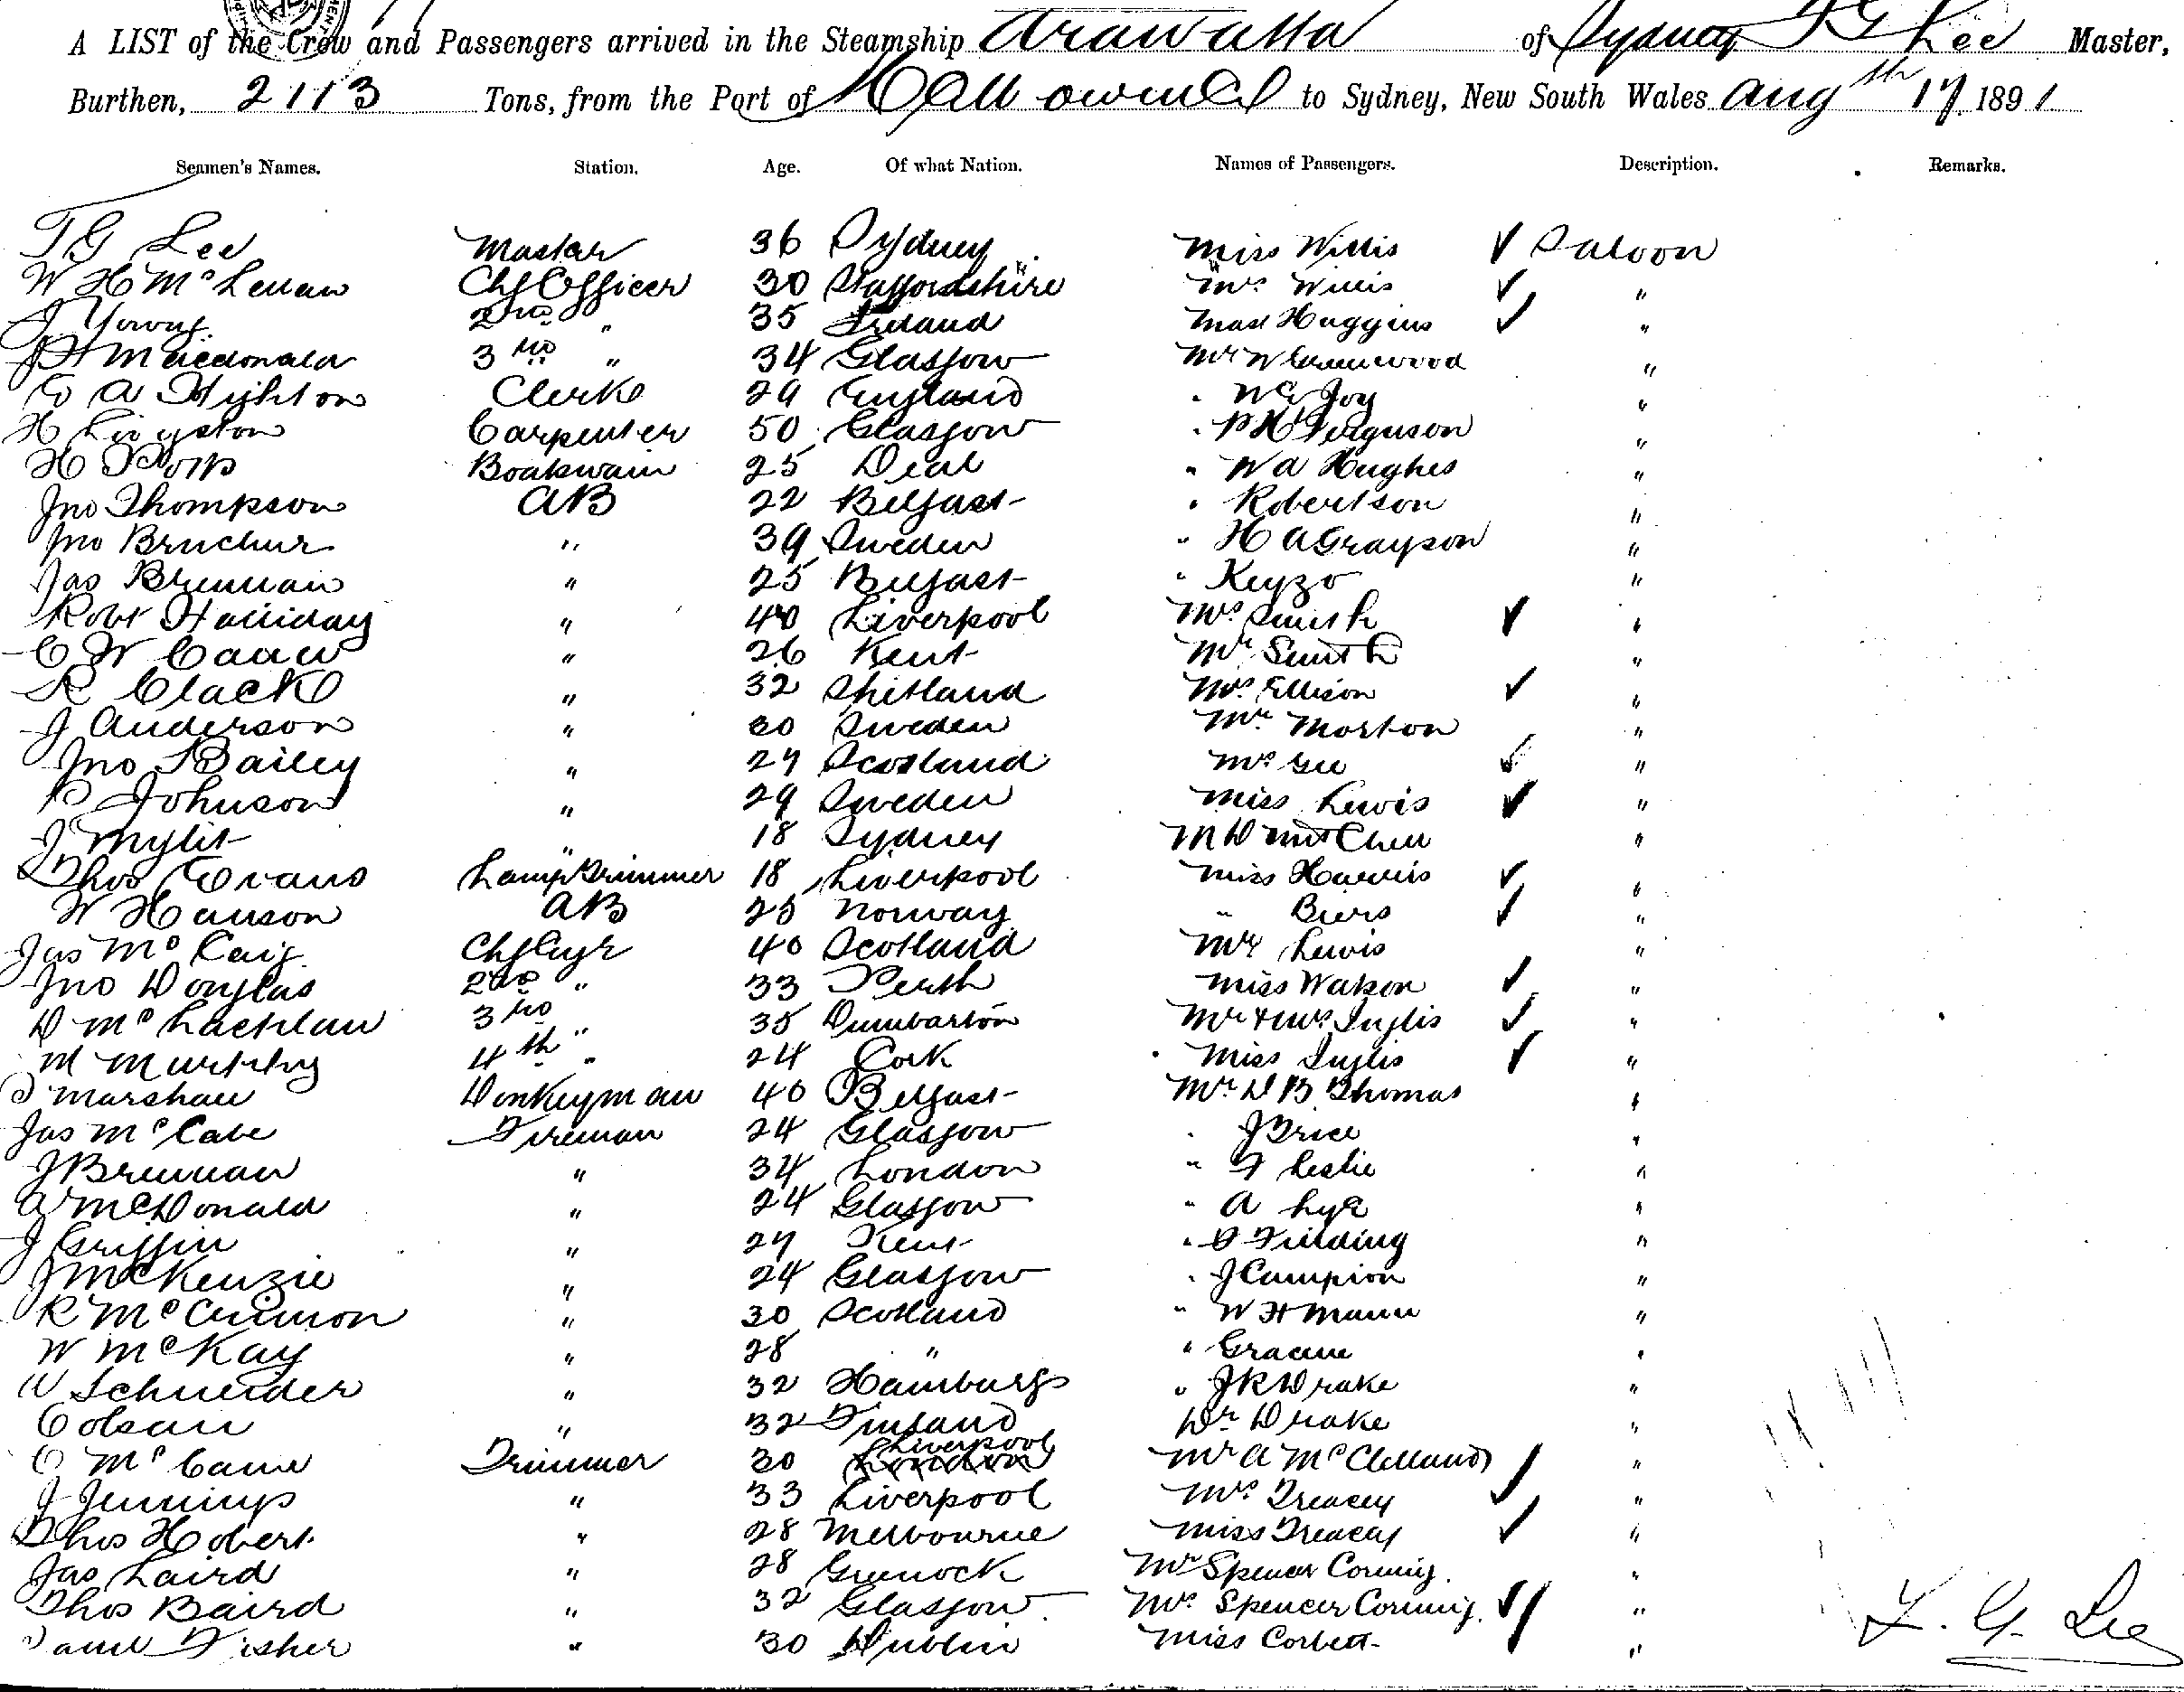 A LIST of the Crew and Passengers arrived in the Steamship Arawatta of Sydney T G Lee Master,
Burthen, 2113 Tons, from the Port of to Sydney, New South Wales Aug 17th 1891
Seamen's Names. Station. Age. Of what Nation. Names of Passengers. Description. Remarks.
T G Lee Master 36 Sydney Miss Willis ✓ Saloon
W H McLennan Chf Officer 30 Staffordshire Mrs Willis ✓ "
J Young 2nd " 35 Ireland Mast Huggins ✓ "
J H Macdonald 3rd " 34 Glasgow Mr W Greenwood "
E A Highton Clerk 29 England " Joy "
H Livingston Carpenter 50 Glasgow " P H Ferguson "
H Boatswain 25 Deal " W A Hughes "
Jno Thompson AB 22 Belfast " Robertson "
Jno " 39 Sweden " H A Grayson "
Jas Brennan " 25 Belfast " Keyzo "
Robt Halliday " 40 Liverpool Mrs Smith ✓ "
C W " 26 Kent Mr Smith "
R Clack " 32 Shetland Mrs Ellison ✓ "
J Anderson " 30 Sweden Mr Morton "
Jno Bailey " 27 Scotland Mrs Gee ✓ "
P Johnson " 29 Sweden Miss Lewis ✓ "
J " 18 Sydney M D Mitchell "
Thos Evans Lamp Trimmer 18 Liverpool Miss Harris ✓ "
W Hanson AB 25 Norway " Biers ✓ "
Jas McCaig Chf Engr 40 Scotland Mr Lewis "
Jno Douglas 2nd " 33 Perth Miss Watson ✓ "
D McLachlan 3rd " 35 Dumbarton Mr & Mrs Inglis ✓ "
M Murphy 4th " 24 Cork " Miss Inglis ✓ "
Marshall Donkeyman 40 Belfast Mr D B Thomas "
Jas McCabe Fireman 24 Glasgow " J Brice "
J Brennan " 34 London " F Leslie "
A McDonald " 24 Glasgow " A "
J Griffin " 27 Kent " Fielding "
J McKenzie " 24 Glasgow " J Campion "
R McCrimmon " 30 Scotland " W H Mann "
W McKay " 28 " " Graeme "
W Schneider " 32 Hamburg " J R Drake "
Colsen " 32 Finland Dr Drake "
C McCann Trimmer 30 Liverpool Mr A McClelland "
J Jennings " 33 Liverpool Mrs Treacey ✓ "
Thos Hobert " 28 Melbourne Miss Treacey ✓ "
Jas Laird " 28 Greenock Mr Spencer "
Thos Baird " 32 Glasgow Mrs Spencer ✓ "
Fisher " 30 Dublin Miss Corbett ✓ "
T. G. Lee